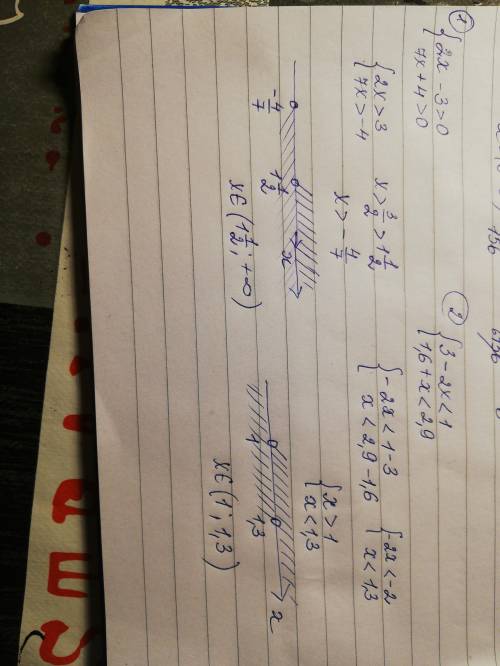 1)
{2x - 3 > 0
{7x + 4 > 0
{2x > 3
{7x > -4
x > 3/2 > 1 1/2
x > - 4/7
-4/7 1 1/2 x
x ∈ (1 1/2; +∞)
2)
{3 - 2x < 1
{1,6 + x < 2,9
{-2x < 1 - 3
{x < 2,9 - 1,6
{-2x < -2
{x < 1,3
{x > 1
{x < 1,3
1 1,3 x
x ∈ (1; 1,3)